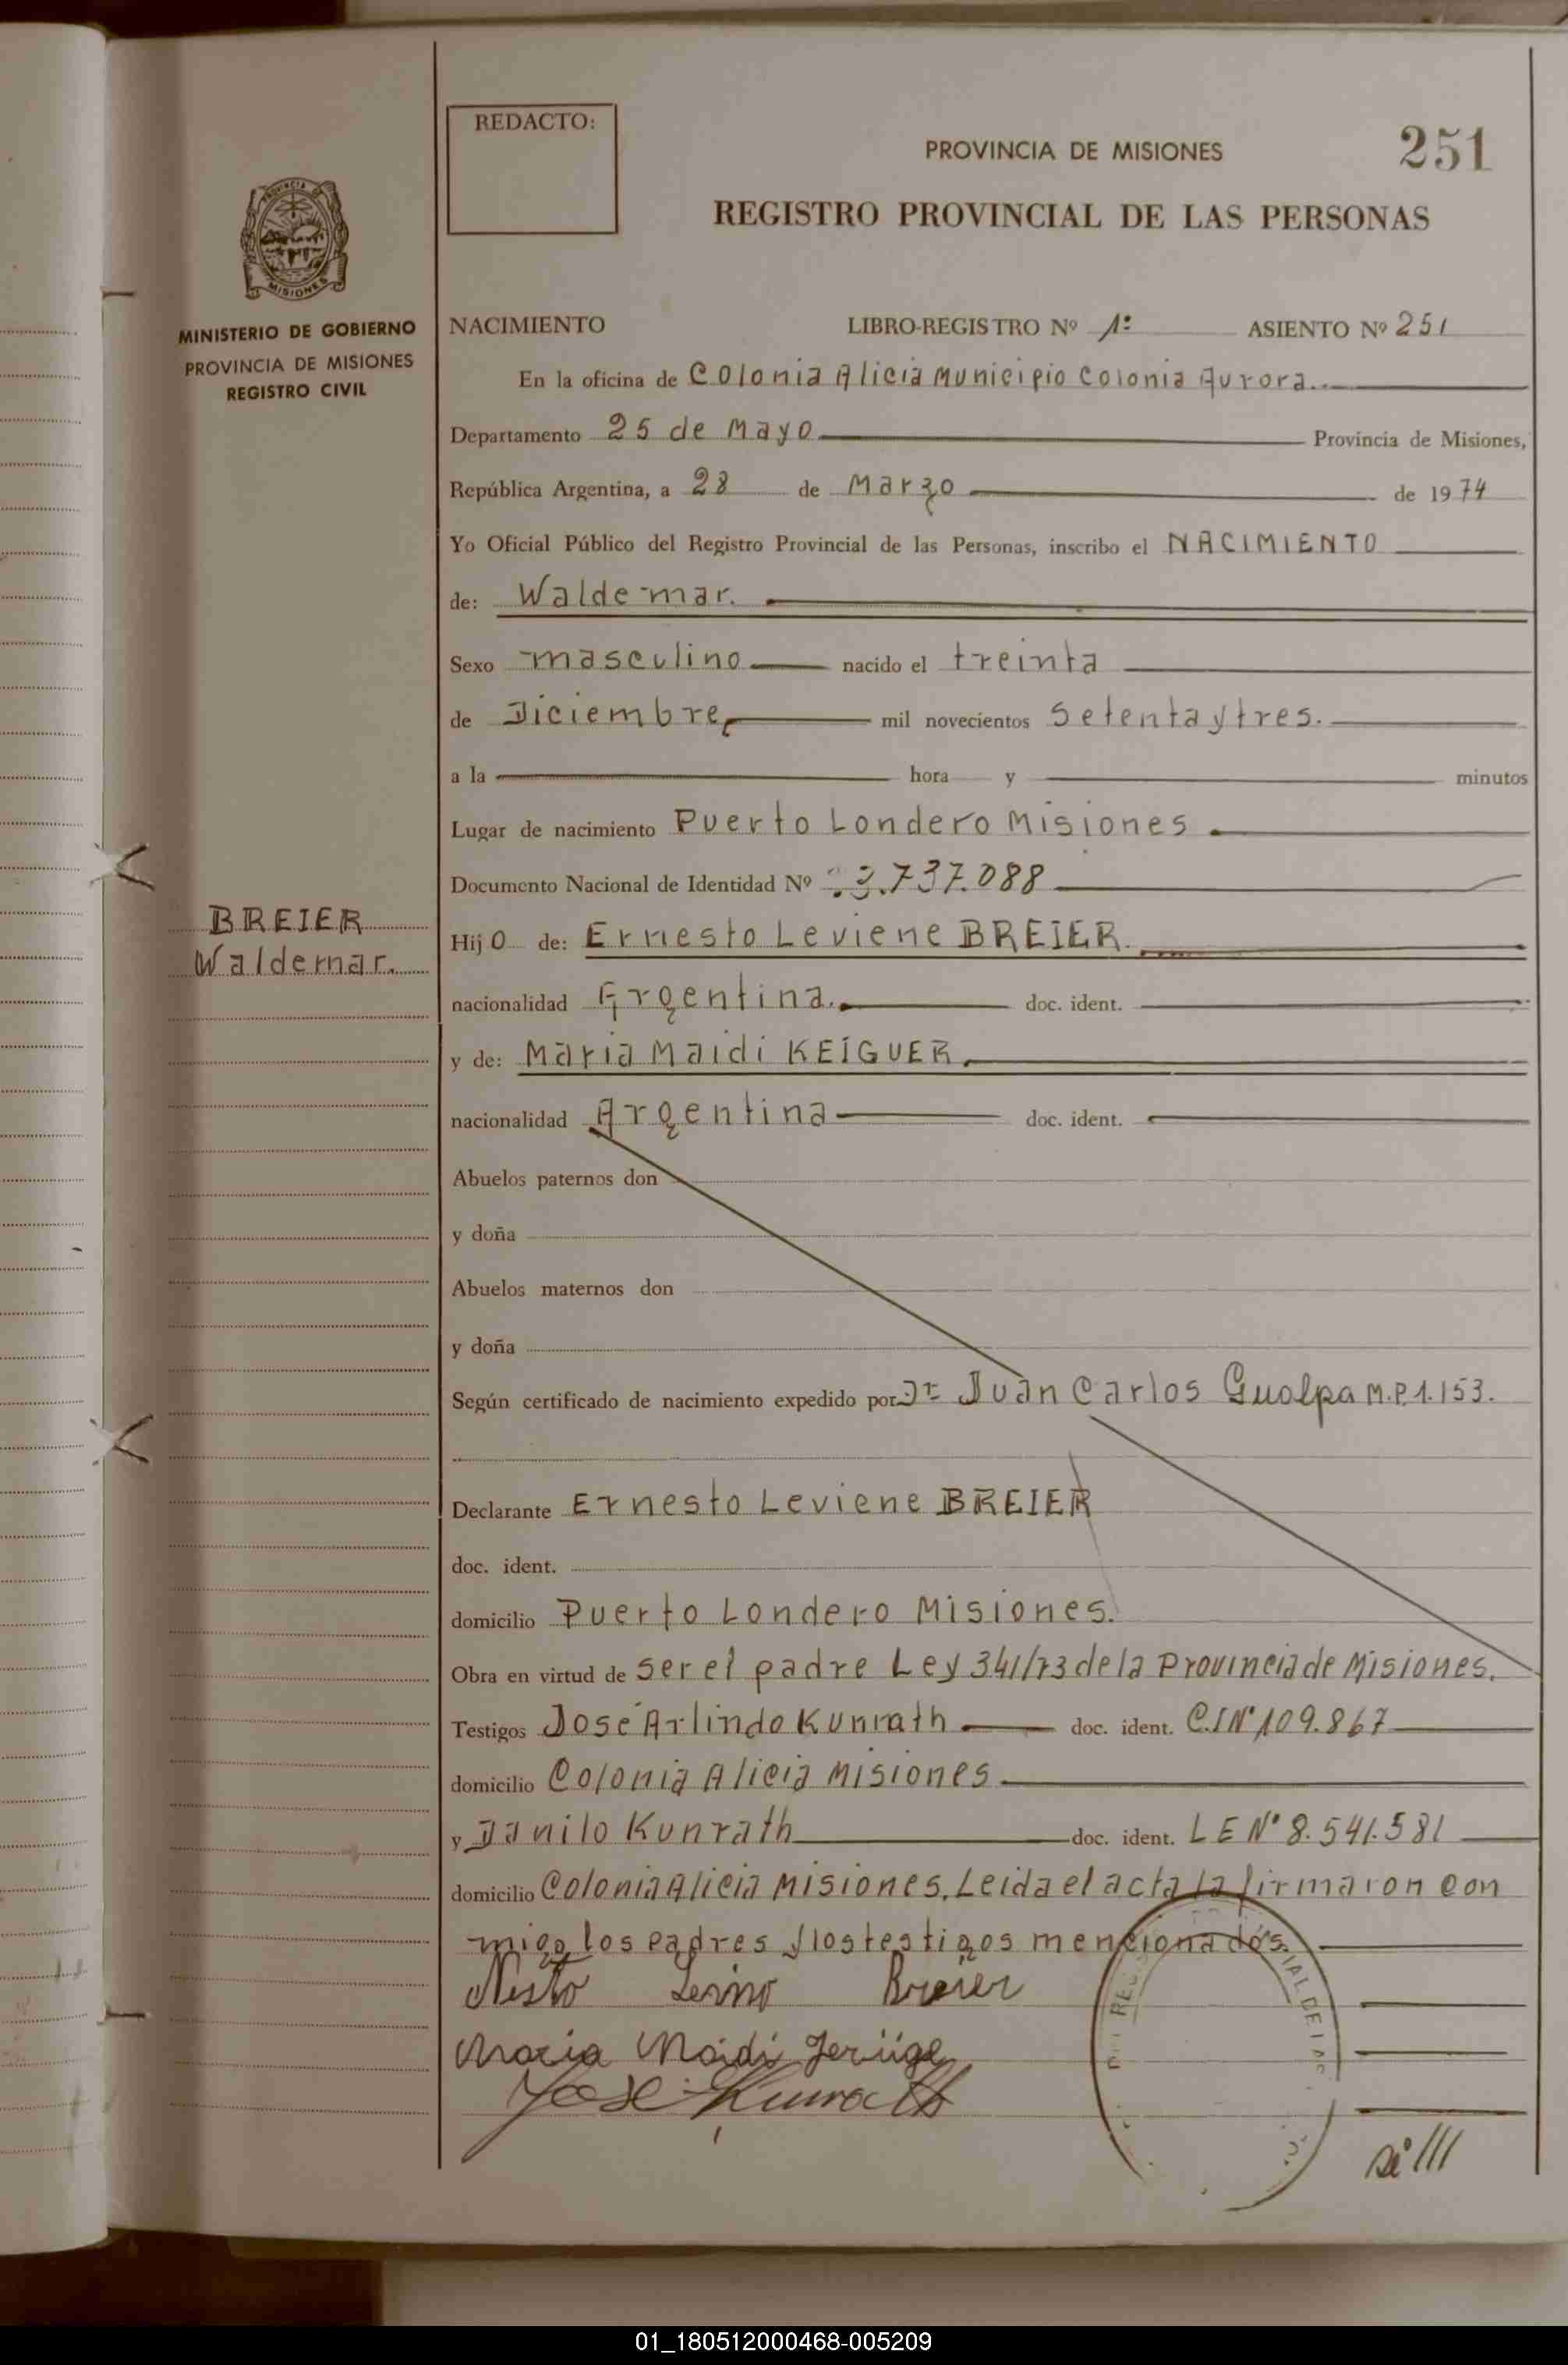 REDACTO:
PROVINCIA DE MISIONES
251
REGISTRO PROVINCIAL DE LAS PERSONAS
PROVINCIA DE
MISIONES
MINISTERIO DE GOBIERNO
PROVINCIA DE MISIONES
REGISTRO CIVIL
NACIMIENTO LIBRO-REGISTRO Nº 1º ASIENTO Nº 251
En la oficina de Colonia Alicia Municipio Colonia Aurora.
Departamento 25 de Mayo Provincia de Misiones,
República Argentina, a 28 de Marzo de 1974
Yo Oficial Público del Registro Provincial de las Personas, inscribo el NACIMIENTO
de: Waldemar.
Sexo masculino nacido el treinta
de Diciembre, mil novecientos Setenta y tres.
a la hora y minutos
Lugar de nacimiento Puerto Londero Misiones.
Documento Nacional de Identidad Nº 3.737.088
BREIER
Waldemar.
Hijo de: Ernesto Leviene BREIER.
nacionalidad Argentina. doc. ident.
y de: Maria Maidi KEIGUER.
nacionalidad Argentina doc. ident.
Abuelos paternos don
y doña
Abuelos maternos don
y doña
Según certificado de nacimiento expedido por Dr Juan Carlos Gualpa M.P.1.153.
Declarante Ernesto Leviene BREIER
doc. ident.
domicilio Puerto Londero Misiones.
Obra en virtud de Ser el padre Ley 341/73 de la Provincia de Misiones.
Testigos José Arlindo Kunrath doc. ident. C.I Nº 109.867
domicilio Colonia Alicia Misiones
y Danilo Kunrath doc. ident. L E Nº 8.541.581
domicilio Colonia Alicia Misiones. Leida el acta la firmaron con
migo los padres y los testigos mencionados.
Nesto Breier
Maria Maidi
José Kunrath
si///
01_180512000468-005209